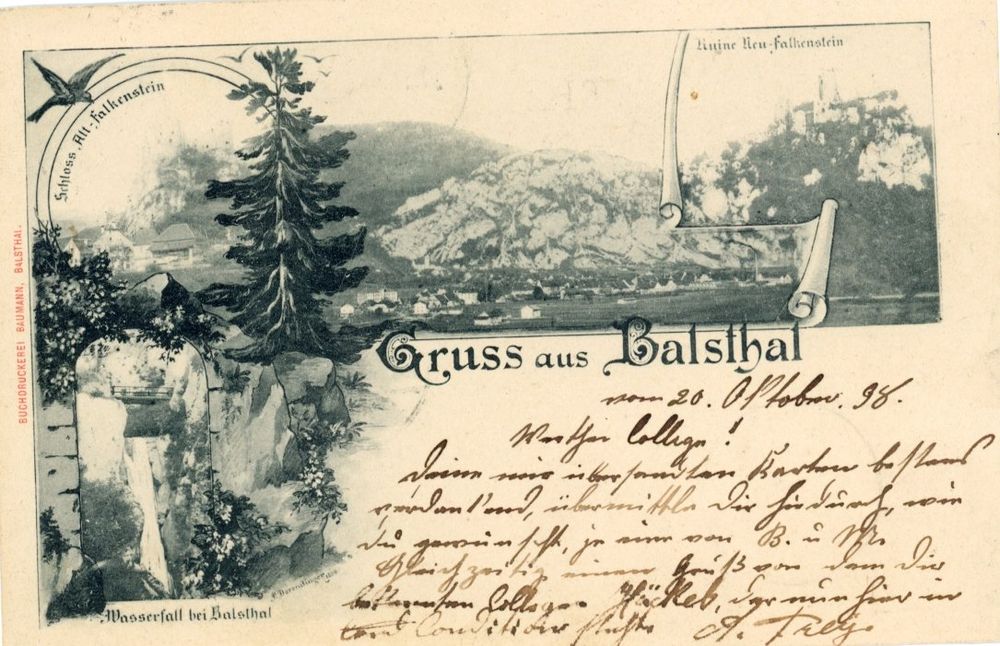 Schloss Alt-Falkenstein
Ruine Neu-Falkenstein
BUCHDRUCKEREI BAUMANN, BALSTHAL.
Gruss aus Balsthal
vom 20. Oktober. 98.
Werther College!
Deine mir übersandten Karten bestens
verdankend, übermittle Dir hiedurch, wie
Du gewünscht, je eine von B. u M.
Gleichzeitig einen Gruß von dem Dir
bekannten Collegen der nun hier in
Condition steht.
A. Frey.
Wasserfall bei Balsthal